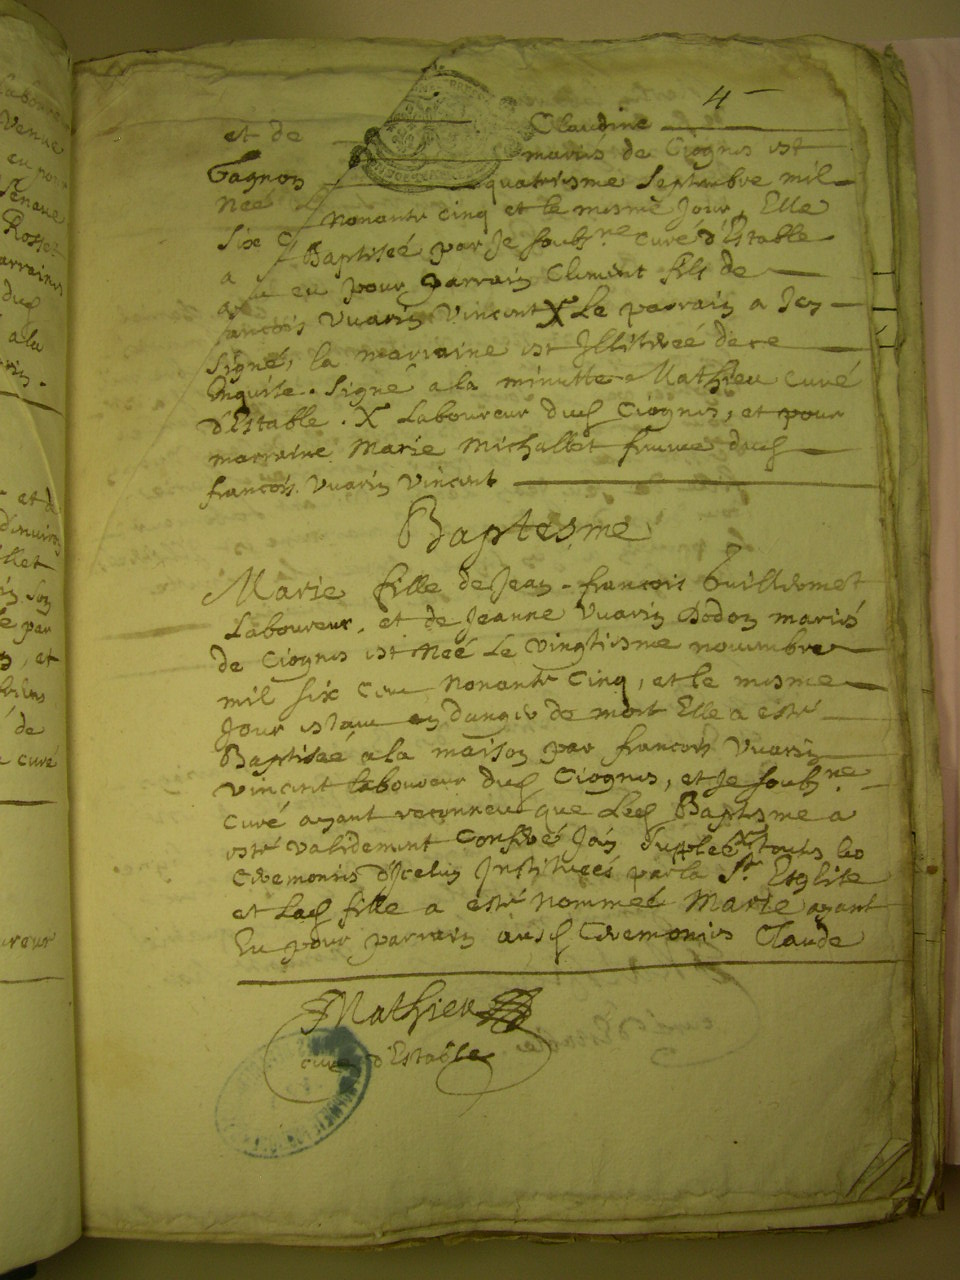 4
et de Claudine
Gagnon mariés de Ciognis est
Née quatriesme septembre mil
six nonante cinq et le mesme Jour, Elle
a Baptiseé par Je soubz.ne curé d'Estable
eu pour parrain Climent fils de
francois Vuarin Vincent X Le parrain a Icy
signé, la marraine est Illitereé de ce
Enquise. Signé a la minutte Mathieu curé
d'Estable. X Laboureur dud Ciognis, et pour
marraine Marie Michallet femme dud
francois Vuarin Vincent
Baptesme
Marie fille de Jean-francois Guillermet
Laboureur, et de Jeanne Vuarin Dodon mariés
de Ciognis est Neé Le vingtiesme novembre
mil six Cent Nonante Cinq, et le mesme
Jour estant en dangier de mort Elle a esté
Baptiseé a la maison par francois Vuarin
Vincent laboureur dud Ciognis, et Je soubz.ne
Curé ayant reconneu que Led Baptesme a
esté validement Conferé Jay supleé toutes les
Ceremonies d'Icelui Instituees par la Ste Esglise
et Lad fille a esté nommeé Marie ayant
Eu pour parrain ausd Ceremonies Claude
Mathieu
curé d'Estable